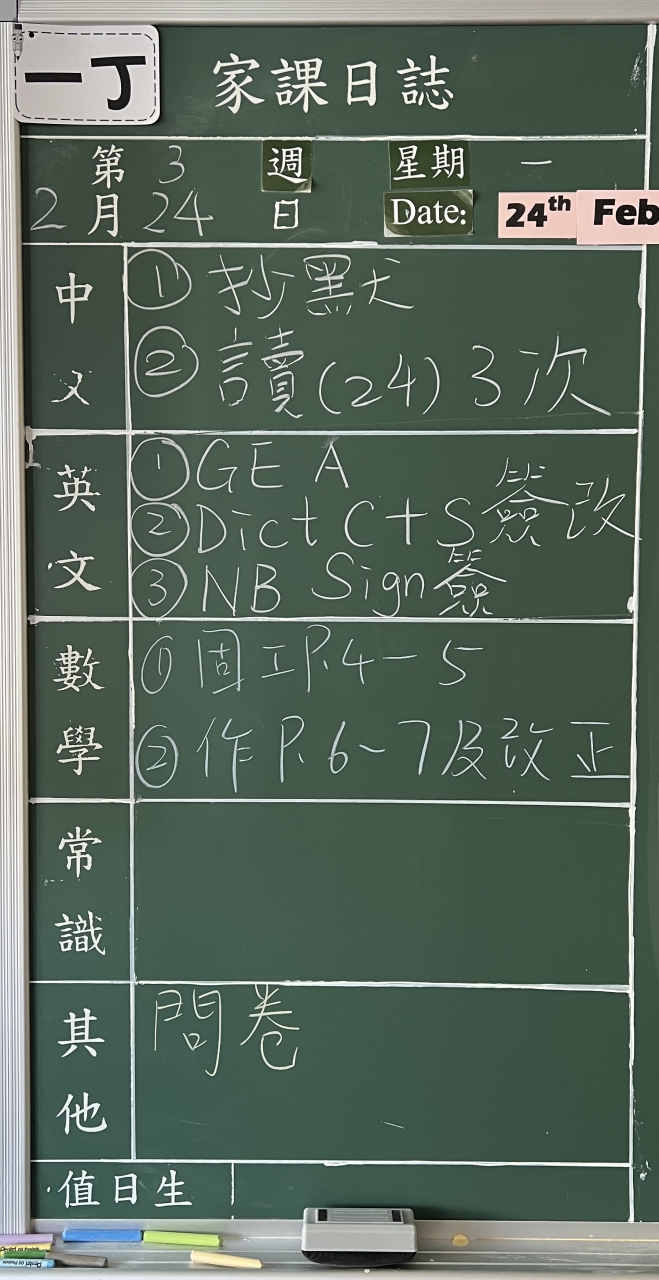 一丁
家課日誌
第 3 週 星期 一
2月24日 Date: 24th Feb
中文
① 抄默
② 讀(24) 3次
英文
① GE A
② Dict C+S 簽改
③ NB Sign 簽
數學
① 固工P.4-5
② 作P.6-7及改正
常識
其他
問卷
值日生